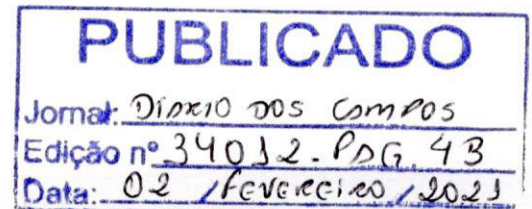 PUBLICADO
Jornal: Diário dos Campos
Edição nº 34012. PAG. 4B
Data: 02 / fevereiro / 2021